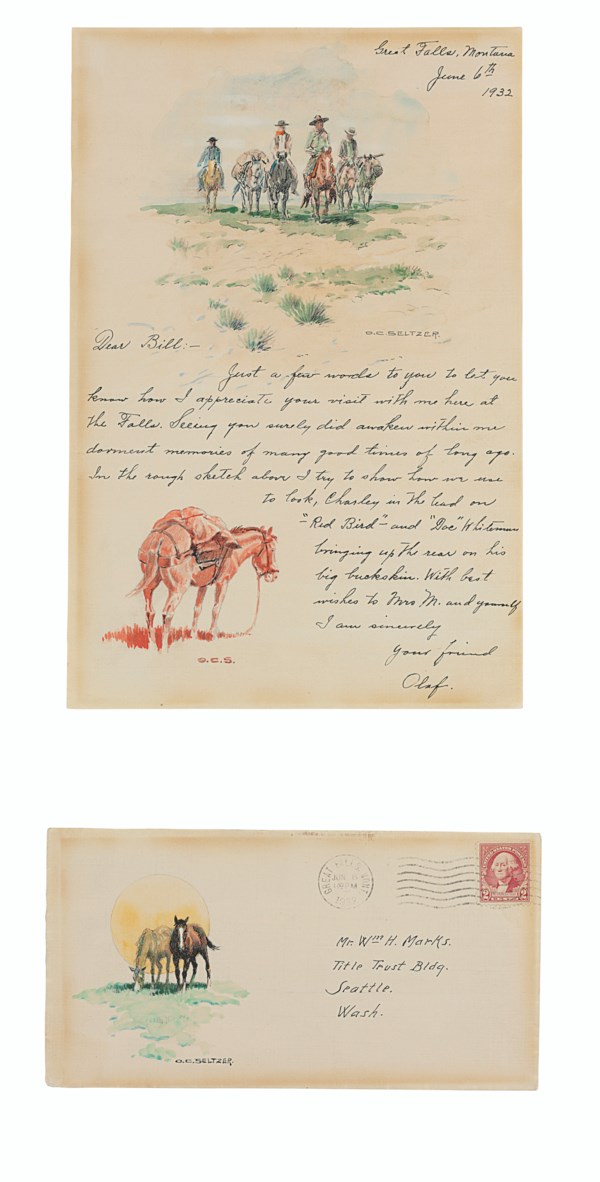 Great Falls, Montana
June 6th
1932
O.C. SELTZER.
Dear Bill:—
Just a few words to you to let you
know how I appreciate your visit with me here at
the Falls. Seeing you surely did awaken within me
dorment memories of many good times of long ago.
In the rough sketch above I try to show how we use
to look, Charley in the lead on
"Red Bird" and "Doc" Whiteman
bringing up the rear on his
big buckskin. With best
wishes to Mrs M. and yourself
I am sincerely
Your friend
Olaf.
O.C.S.
GREAT FALLS, MONT
JUN 6
1932
2 2
Mr. Wm H. Marks.
Title Trust Bldg.
Seattle.
Wash.
O.C. SELTZER.